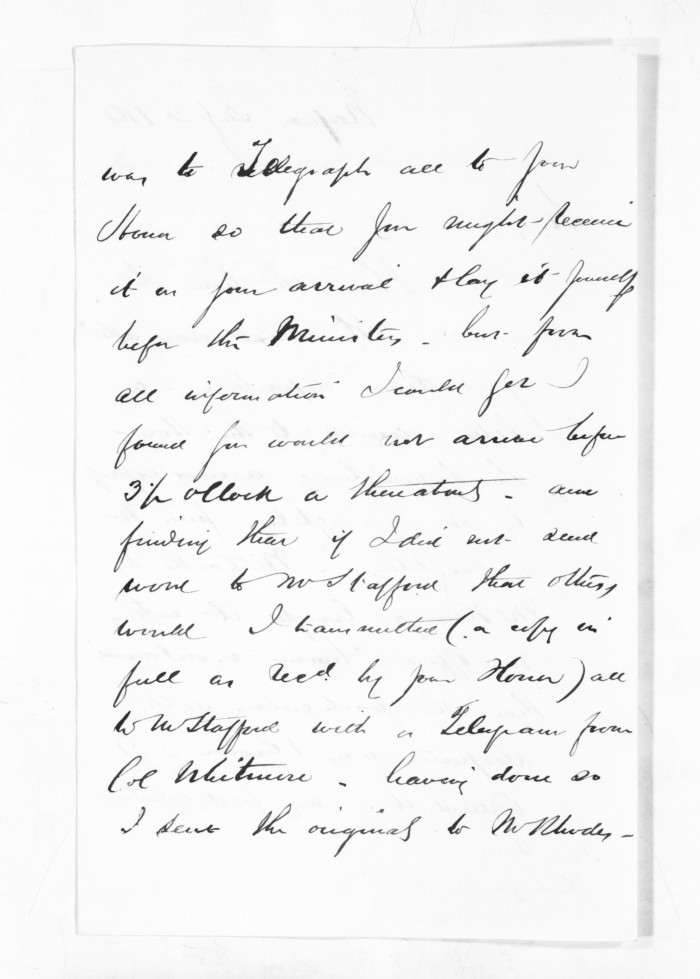 was to Telegraph all to your
Honor so that you might receive
it on your arrival & lay it yourself
before the Ministers - but from
all information I could get I
found you would not arrive before
3½ oClock or thereabouts - and
finding that if I did not send
word to Mr Stafford that others
would I transmitted (a copy in
full as Recd. by your Honor) all
to Mr Stafford with a Telegram from
Col Whitmore - having done so
I sent the originals to Mr Rhodes -